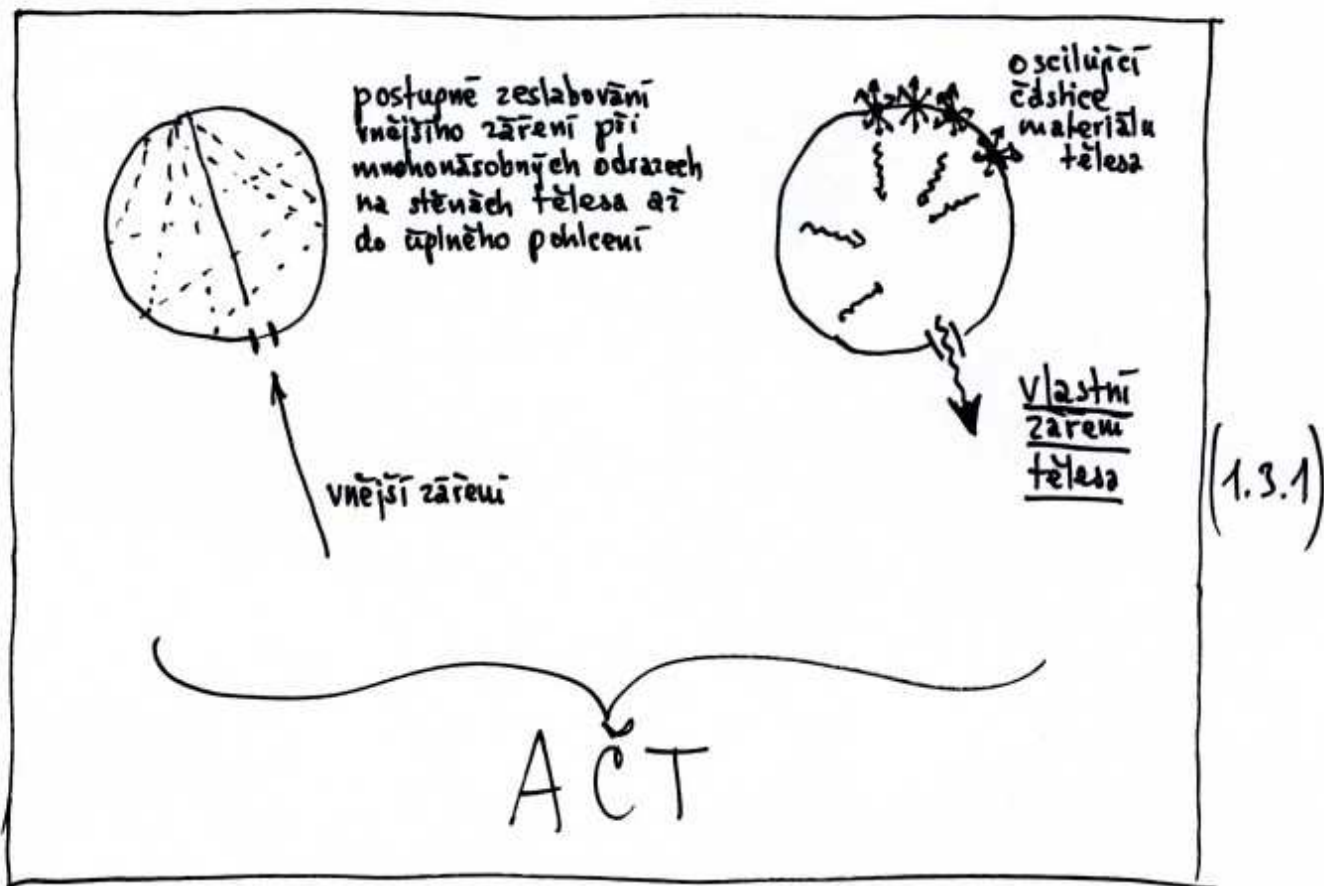 postupné zeslabování
vnějšího záření při
mnohonásobných odrazech
na stěnách tělesa až
do úplného pohlcení
vnější záření
oscilující
částice
materiálu
tělesa
vlastní
záření
tělesa
(1.3.1)
AČT